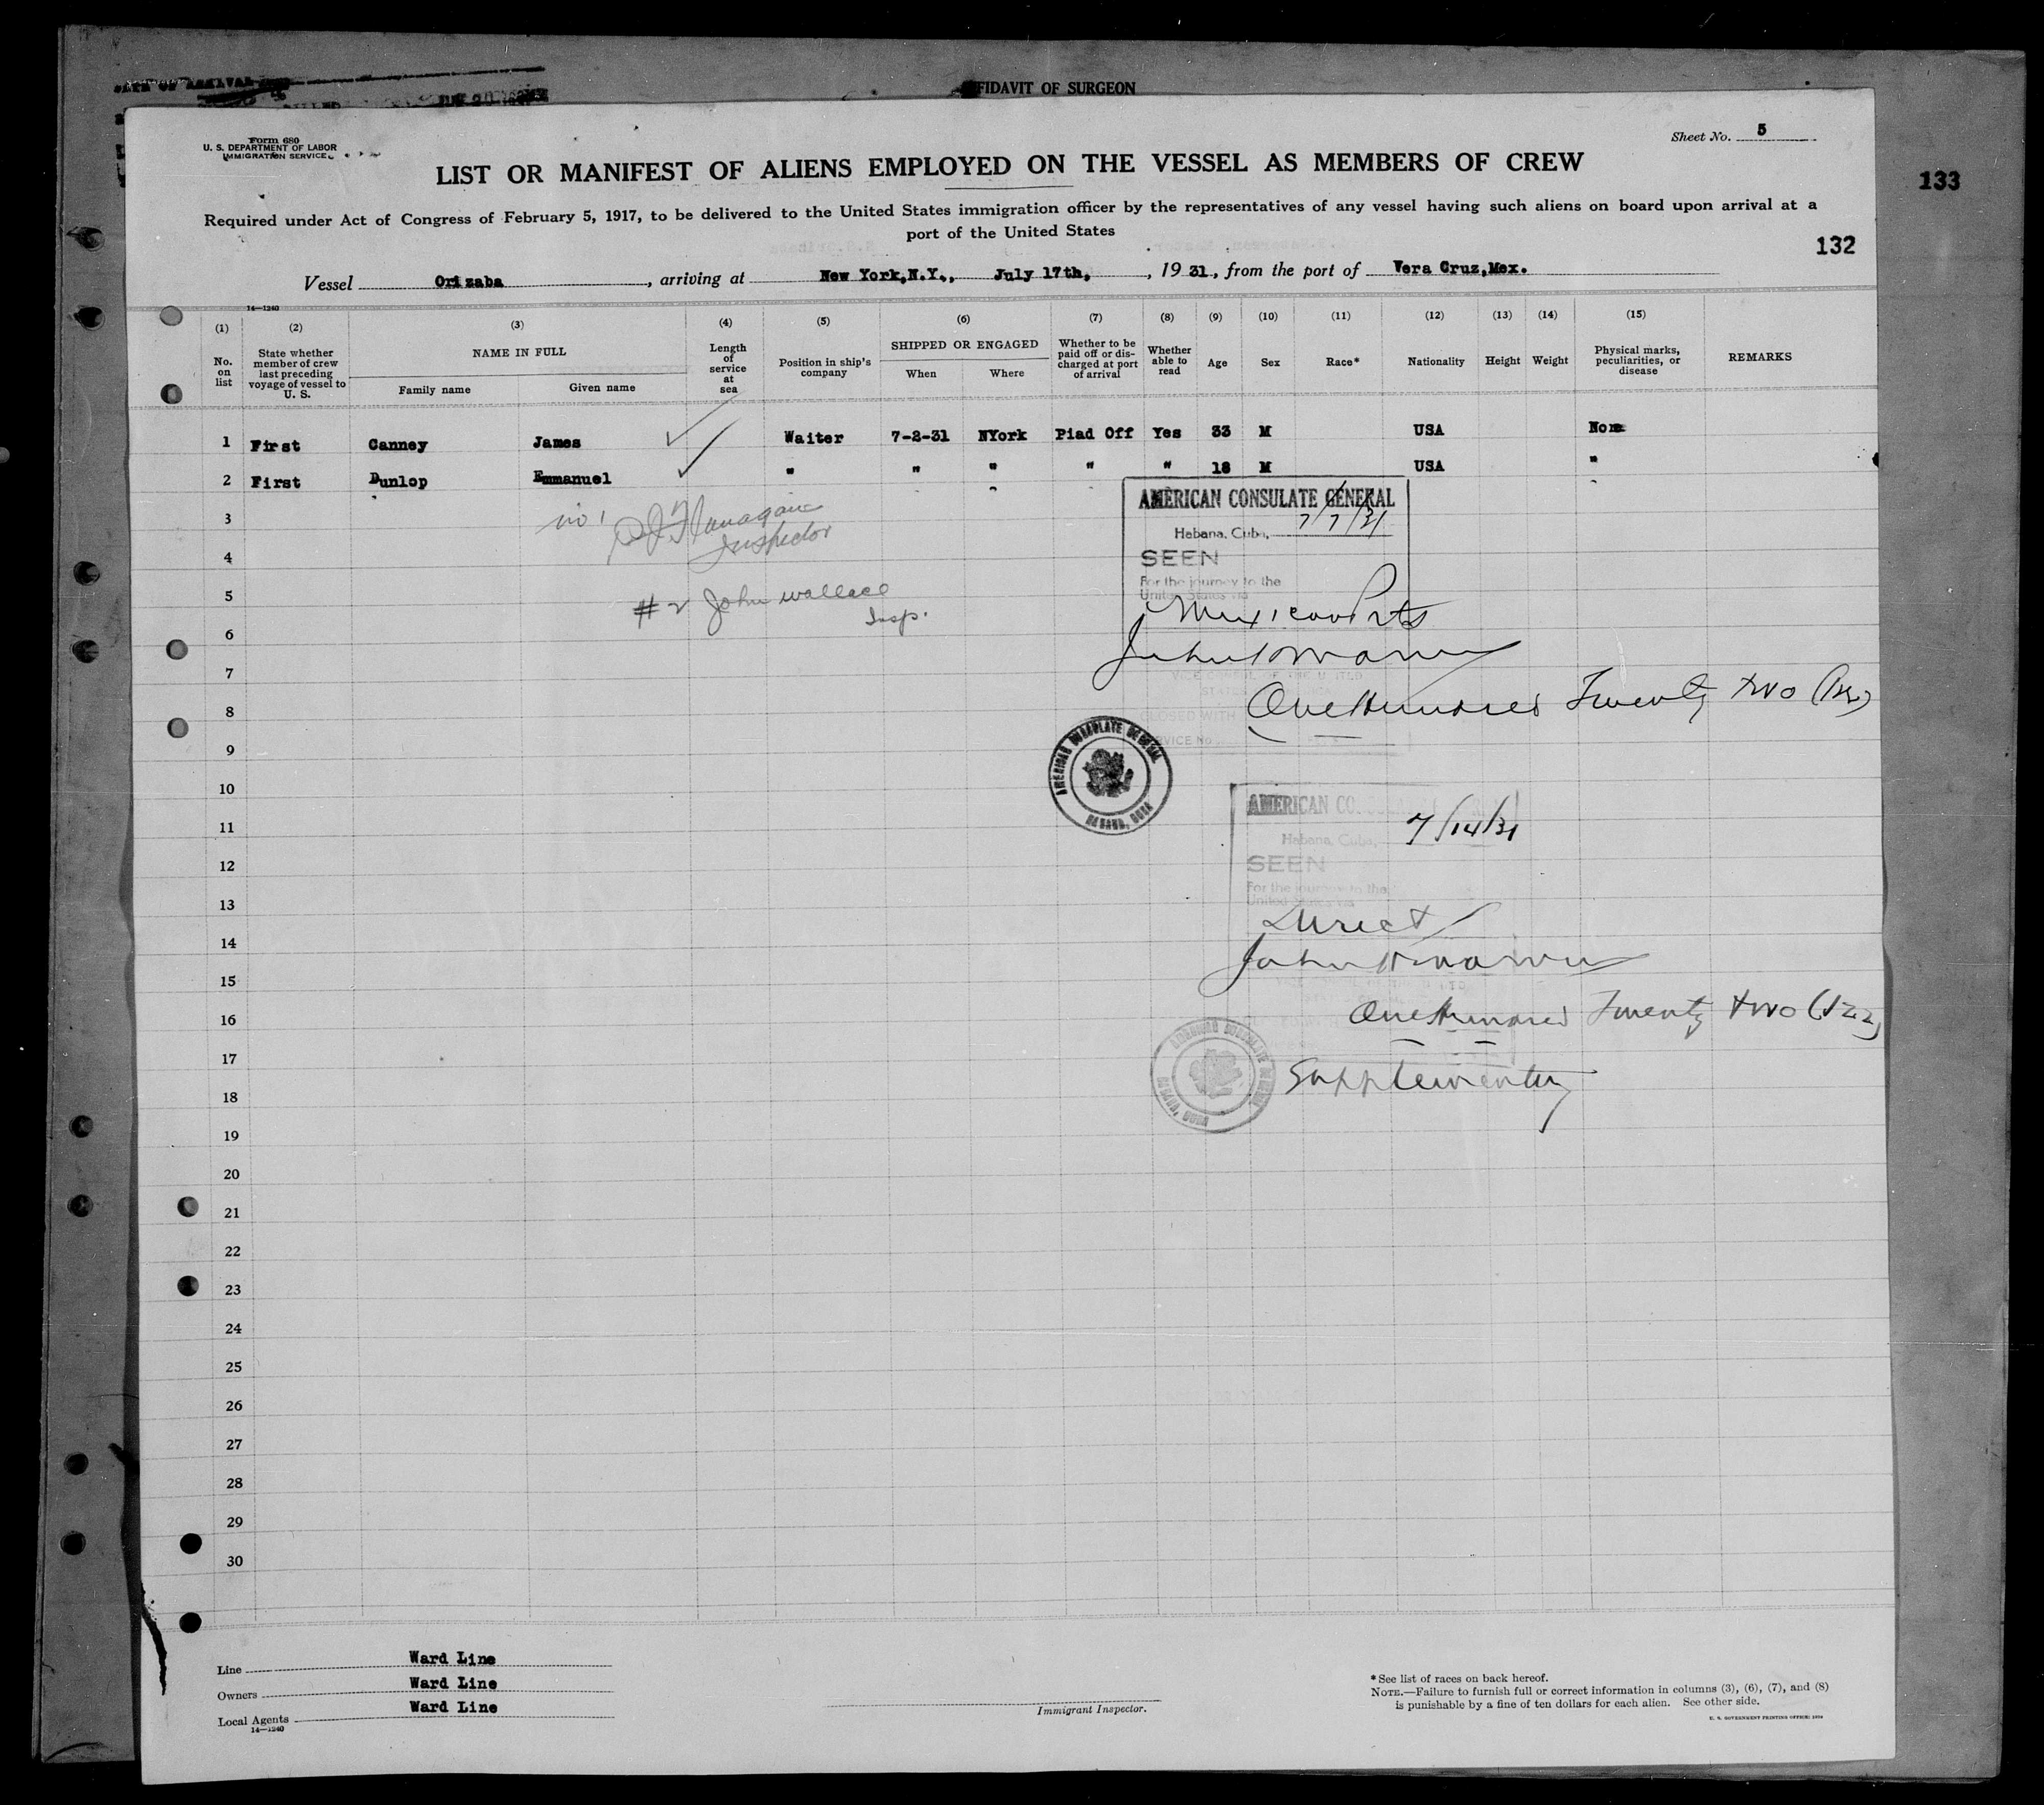 FIDAVIT OF SURGEON
Form 680
U. S. DEPARTMENT OF LABOR
IMMIGRATION SERVICE
Sheet No. 5
133
LIST OR MANIFEST OF ALIENS EMPLOYED ON THE VESSEL AS MEMBERS OF CREW
Required under Act of Congress of February 5, 1917, to be delivered to the United States immigration officer by the representatives of any vessel having such aliens on board upon arrival at a
port of the United States
132
Vessel Orizaba, arriving at New York,N.Y., July 17th, , 19 31, from the port of Vera Cruz,Mex.
14—1240
(1) (2) (3) (4) (5) (6) (7) (8) (9) (10) (11) (12) (13) (14) (15)
No. on list
State whether member of crew last preceding voyage of vessel to U. S.
NAME IN FULL
Family name
Given name
Length of service at sea
Position in ship's company
SHIPPED OR ENGAGED
When
Where
Whether to be paid off or discharged at port of arrival
Whether able to read
Age
Sex
Race*
Nationality
Height
Weight
Physical marks, peculiarities, or disease
REMARKS
1 First Canney James Waiter 7-2-31 NYork Piad Off Yes 33 M USA None
2 First Dunlop Emmanuel " " " " " 18 M USA "
3
4
5
6
7
8
9
10
11
12
13
14
15
16
17
18
19
20
21
22
23
24
25
26
27
28
29
30
no 1
Flanagan
Inspector
# 2 John Wallace
Insp.
AMERICAN CONSULATE GENERAL
Habana, Cuba, 7/7/31
SEEN
For the journey to the
United States via
Mexican Ports
VICE CONSUL OF THE UNITED
One Hundred Twenty two (122)
SERVICE No
AMERICAN CONSULATE GENERAL
HABANA, CUBA
AMERICAN CO
Habana, Cuba, 7/14/31
SEEN
For the journey to the
United States via
Direct
One Hundred Twenty two (122)
AMERICAN CONSULATE GENERAL
HABANA, CUBA
Supplementry
Line Ward Line
Owners Ward Line
Local Agents Ward Line
14—1240
Immigrant Inspector.
*See list of races on back hereof.
NOTE.—Failure to furnish full or correct information in columns (3), (6), (7), and (8)
is punishable by a fine of ten dollars for each alien. See other side.